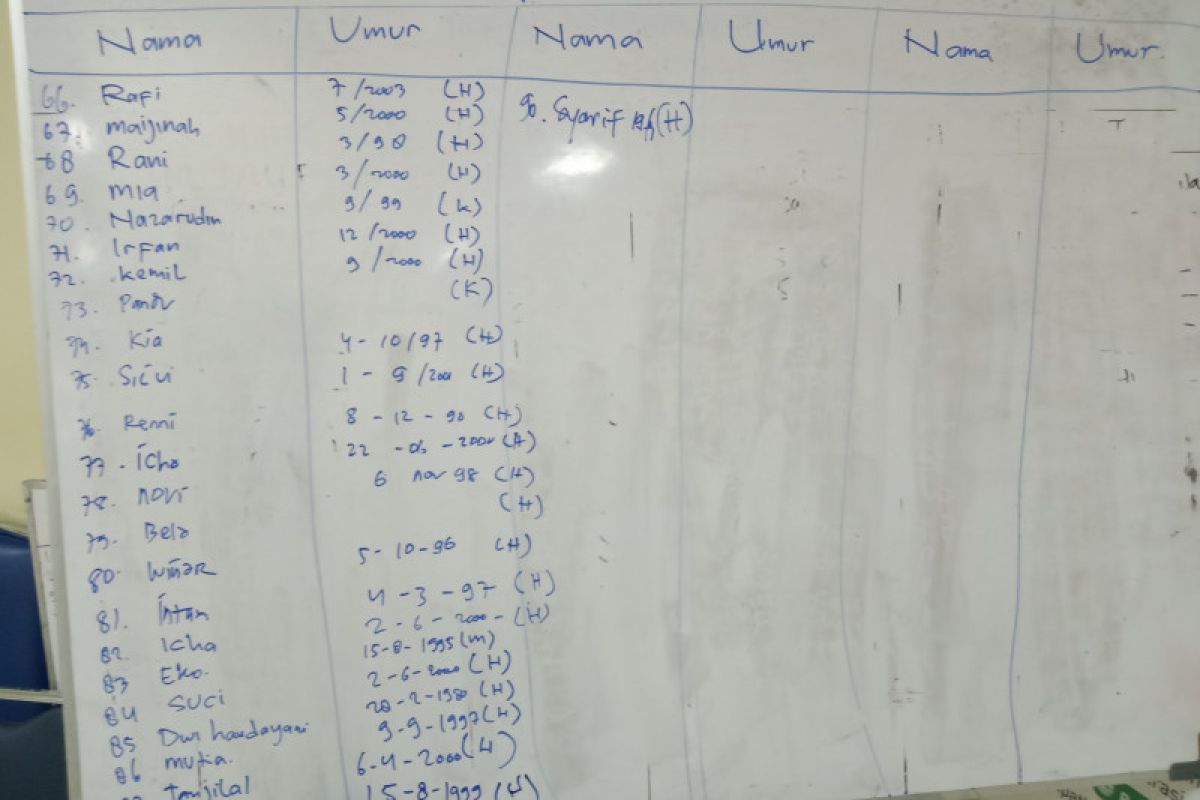 Nama Umur Nama Umur Nama Umur
66. Rafi 7/2003 (H) 90. Syarif (H)
67. maijinah 5/2000 (H)
68 Rani 3/98 (H)
69. mia 3/2000 (H)
70. Nazarudin 9/99 (K)
71. Irfan 12/2000 (H)
72. kemil 9/2000 (H)
73. (K)
74. Kia 4-10/97 (H)
75. Sicui 1-9/2001 (H)
76. Remi 8-12-90 (H)
77. icha 22-06-2000 (H)
78. novi 6 nov 98 (H)
79. Bela (H)
80. 5-10-96 (H)
81. intan 4-3-97 (H)
82. Icha 2-6-2000-(H)
83 Eko. 15-8-1995 (m)
84 SUCI 2-6-2000 (H)
85 Dwi handayani 20-2-1980 (H)
86 mutia. 9-9-1997 (H)
Tanjilal 6-4-2000 (H)
15-8-1999 (H)